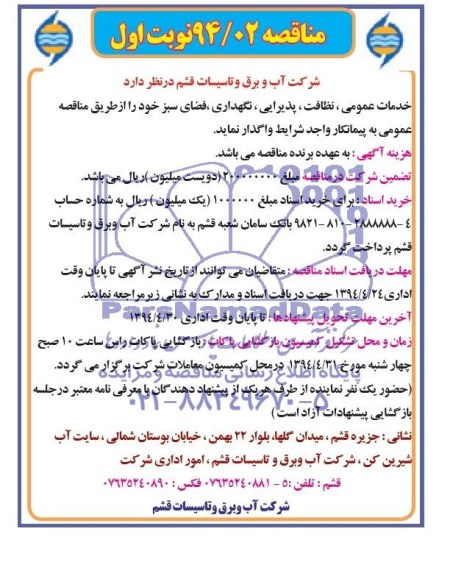 مناقصه ۹۴/۰۲ نوبت اول
شرکت آب و برق و تاسیسات قشم درنظر دارد
خدمات عمومی ، نظافت ، پذیرایی ، نگهداری ،فضای سبز خود را ازطریق مناقصه
عمومی به پیمانکار واجد شرایط واگذار نماید.
هزینه آگهی : به عهده برنده مناقصه می باشد.
تضمین شرکت درمناقصه مبلغ ۲۰۰۰۰۰۰۰۰ (دویست میلیون )ریال می باشد.
خرید اسناد : برای خرید اسناد مبلغ ۱۰۰۰۰۰۰ (یک میلیون ) ریال به شماره حساب
۹۸۲۱-۸۱۰-۲۸۸۸۸۸۸-۴ بانک سامان شعبه قشم به نام شرکت آب وبرق و تاسیسات
قشم پرداخت گردد.
مهلت دریافت اسناد مناقصه : متقاضیان می توانند ازتاریخ نشر آگهی تا پایان وقت
اداری ۱۳۹۴/۴/۲۴ جهت دریافت اسناد و مدارک به نشانی زیرمراجعه نمایند.
آخرین مهلت تحویل پیشنهادها : تا پایان وقت اداری ۱۳۹۴/۴/۳۰
زمان و محل تشکیل کمیسیون بازگشایی پاکات :بازگشایی پاکات راس ساعت ۱۰ صبح
چهار شنبه مورخ ۱۳۹۴/۴/۳۱ درمحل کمیسیون معاملات شرکت برگزار می گردد.
(حضور یک نفر نماینده از طرف هریک از پیشنهاد دهندگان با معرفی نامه معتبر درجلسه
بازگشایی پیشنهادات آزاد است )
نشانی : جزیره قشم ، میدان گلها، بلوار ۲۲ بهمن ، خیابان بوستان شمالی ، سایت آب
شیرین کن ، شرکت آب وبرق و تاسیسات قشم ، امور اداری شرکت
قشم : تلفن :۵-۰۷۶۳۵۲۴۰۸۸۱ فکس : ۰۷۶۳۵۲۴۰۸۹۰
شرکت آب وبرق وتاسیسات قشم
ParsNamadData
پایگاه اطلاع رسانی مناقصه و مزایده
۰۲۱-۸۸۳۴۹۶۷۰-۵